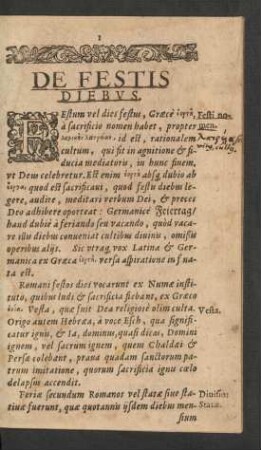 1
DE FESTIS
DIEBVS.
FEstum vel dies festus, Græcè ἑορτὴ,
à sacrificio nomen habet, propter
λογικὴν λατρείαν. id est, rationalem
cultum, qui fit in agnitione & fi-
ducia mediatoris, in hunc finem,
vt Deus celebretur. Est enim ἑορτὴ absq; dubio ab
quod est sacrificans, quod festis diebus le-
gere, audire, meditari verbum Dei, & preces
Deo adhibere oporteat: Germanicè Feiertag/
haud dubiè à feriando seu vacando, quòd vaca-
re illis diebus conueniat cultibus diuinis, omissis
operibus alijs. Sic vtraq; vox Latina & Ger-
manica ex Græca ἑορτὴ, versa aspiratione in f na-
ta est.
Romani festos dies vocarunt ex Numæ institu-
to, quibus ludi & sacrificia fiebant, ex Græco
ἑστία, Vesta, quæ fuit Dea religiosè olim culta.
Origo autem Hebræa, à voce Esch, quæ signifi-
cat ignis, & ia, dominus, quasi dicas, Domini
ignem, vel sacrum ignem, quem Chaldæi &
Persæ colebant, praua quadam sanctorum pa-
trum imitatione, quorum sacrificia ignis cœlo
delapsus accendit.
Feriæ secundum Romanos vel statæ siue sta-
tiuæ fuerunt, quæ quotannis ijsdem diebus men-
sium
Festi no-
men.
Vesta.
Diuisio:
Statæ.